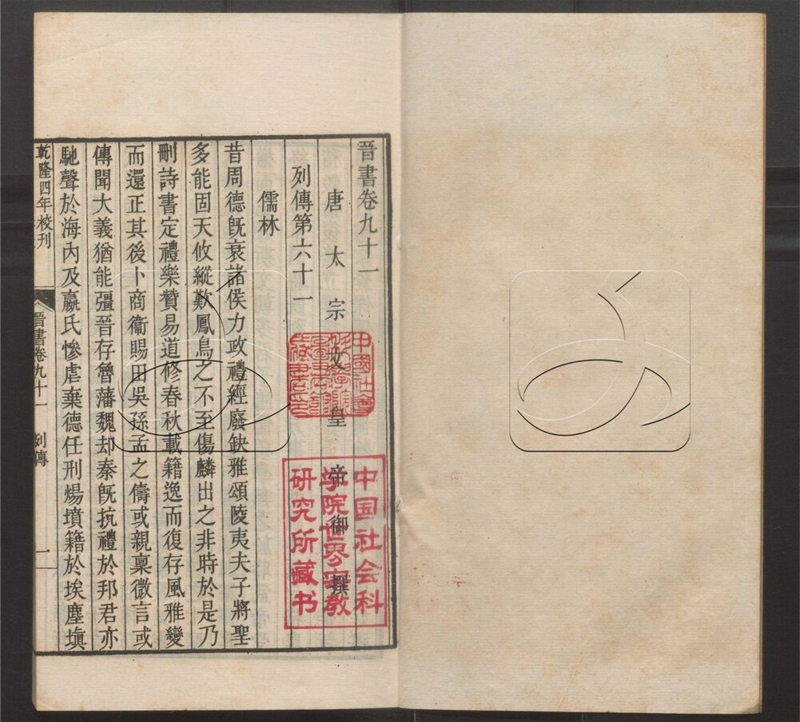 晉書卷九十一
唐太宗文皇帝御撰
列傳第六十一
儒林
昔周德旣衰諸侯力政禮經廢缺雅頌陵夷夫子將聖
多能固天攸縱歎鳳鳥之不至傷麟出之非時於是乃
刪詩書定禮樂贊易道修春秋載籍逸而復存風雅變
而還正其後卜商衞賜田吳孫孟之儔或親稟微言或
傳聞大義猶能彊晉存魯藩魏却秦旣抗禮於邦君亦
馳聲於海內及嬴氏慘虐棄德任刑煬墳籍於埃塵塡
乾隆四年校刊
晉書卷九十一 列傳
一
中國社會
科學院
圖書館
藏書印
中国社会科
学院世界宗教
研究所藏书